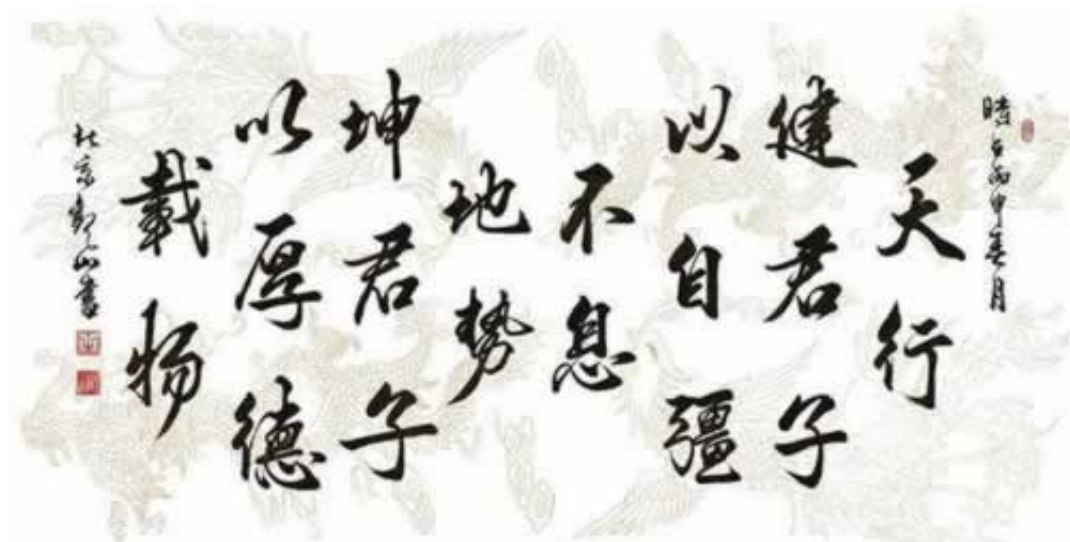 時在丙申春月
天行
健君子
以自疆
不息
地势
坤君子
以厚德
載物
山書